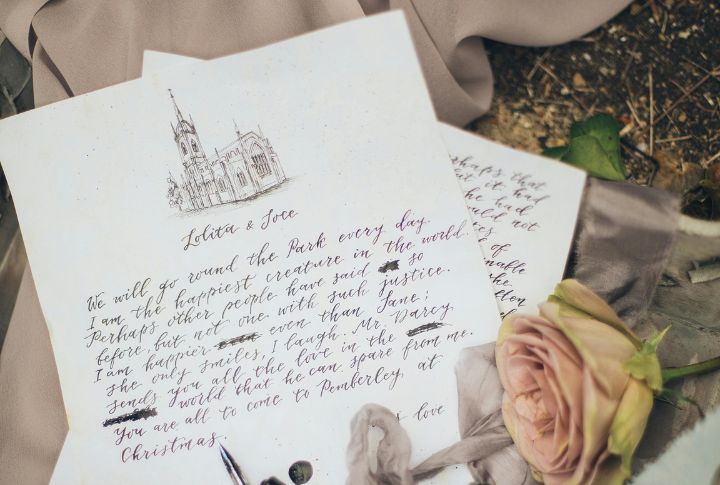 Lolita & Joee
We will go round the Park every day.
I am the happiest creature in the world.
Perhaps other people have said so
before, but not one with such justice.
I am happier even than Jane;
she only smiles, I laugh. Mr. Darcy
sends you all the love in the
world that he can spare from me.
You are all to come to Pemberley, at
Christmas.
love
perhaps that
it had
he had
not
of